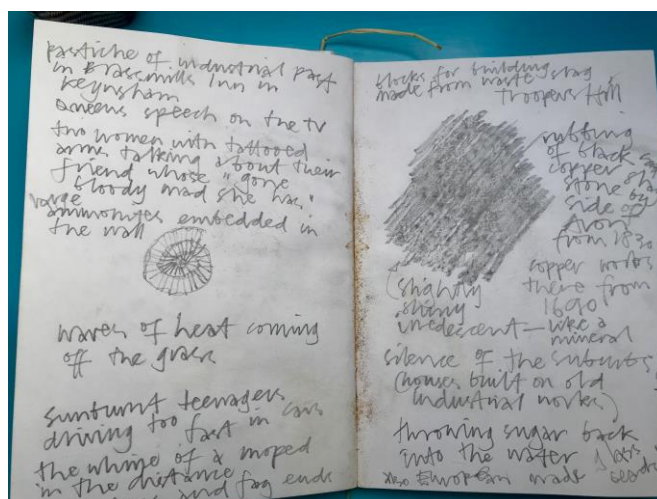 pastiche of industrial past
in Brassmills Inn in
Keynsham
Queens speech on the TV
two women with tattooed
arms talking about their
friend whose "gone
bloody mad she has"
large
ammonites embedded in
the wall
waves of heat coming
off the grass
sunburnt teenagers
driving too fast in cars
the whine of a moped
in the distance
and fag ends
blocks for building
made from waste slag
Troopers Hill
rubbing
of black
copper
stone
by
side of
Avon
from 1830
copper works
there from
1690
(slightly
shiny
iredescent – like a
mineral
silence of the suburbs
(houses built on old
industrial works)
throwing sugar back
into the water
also European made